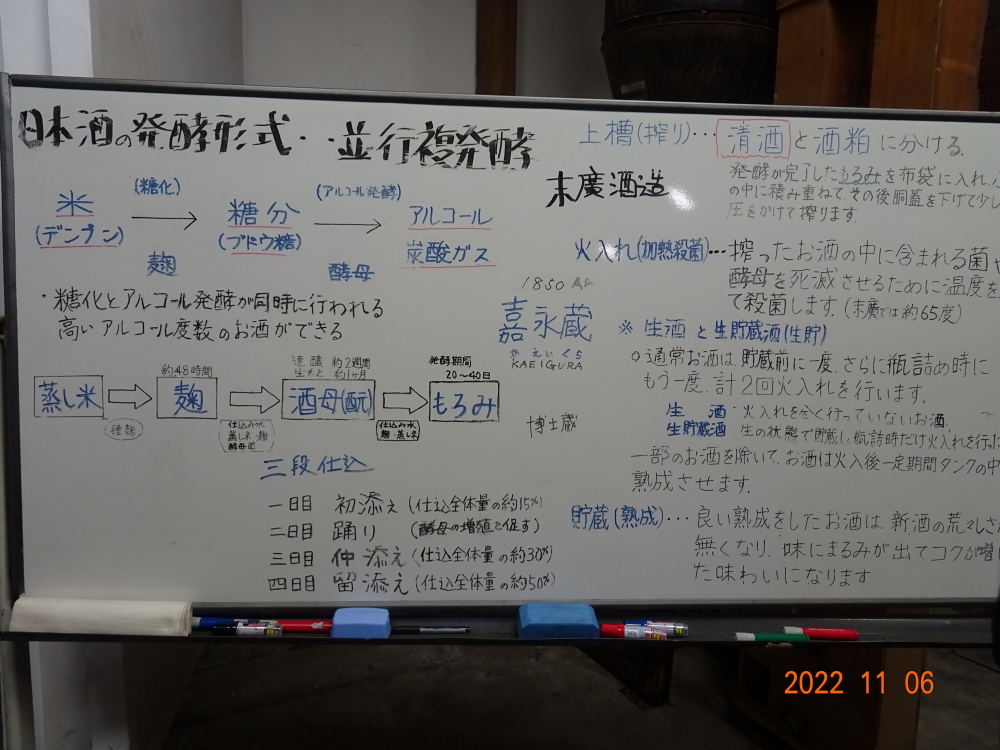 日本酒の発酵形式・・並行複発酵
米
(デンプン)
(糖化)
麹
糖分
(ブドウ糖)
(アルコール発酵)
酵母
アルコール
炭酸ガス
・糖化とアルコール発酵が同時に行われる
高いアルコール度数のお酒ができる
蒸し米
種麹
約48時間
麹
仕込み水
蒸し米・麹
酵母菌
速醸 約2週間
生もと 約1ヶ月
酒母(酛)
仕込み水
麹・蒸し米
発酵期間
20~40日
もろみ
三段仕込
一日目 初添え (仕込全体量の約15%)
二日目 踊り (酵母の増殖を促す)
三日目 仲添え (仕込全体量の約30%)
四日目 留添え (仕込全体量の約50%)
末廣酒造
1850
嘉永蔵
かえいぐら
KAEIGURA
博士蔵
上槽(搾り)… 清酒と酒粕に分ける.
発酵が完了したもろみを布袋に入れ、
の中に積み重ねて、その後胴蓋を下げて少し
圧をかけて搾ります.
火入れ(加熱殺菌)…搾ったお酒の中に含まれる菌や
酵母を死滅させるために温度を
て殺菌します. (末廣では約65度)
※ 生酒と生貯蔵酒(生貯)
○通常お酒は、貯蔵前に一度、さらに瓶詰め時に
もう一度、計2回火入れを行います.
生 酒・火入れを全く行っていないお酒、
生貯蔵酒 生の状態で貯蔵し、瓶詰時だけ火入れを行った
一部のお酒を除いて、お酒は火入後一定期間タンクの中
熟成させます.
貯蔵(熟成)… 良い熟成をしたお酒は、新酒の荒々しさが
無くなり、味にまるみが出てコクが増
た味わいになります
2022 11 06